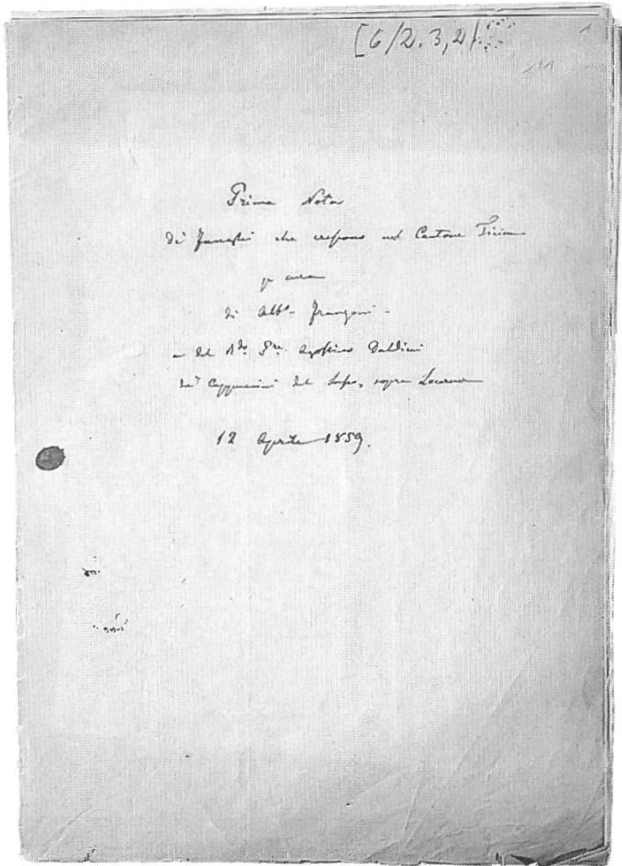 [6/2.3,2]
Prima Nota
di funghi che crescono nel Cantone Ticino
per cura
di Alb.º Franzoni
e del R.do P.re Agostino Daldini
dei Cappuccini del Sasso, sopra Locarno
12 Aprile 1859.